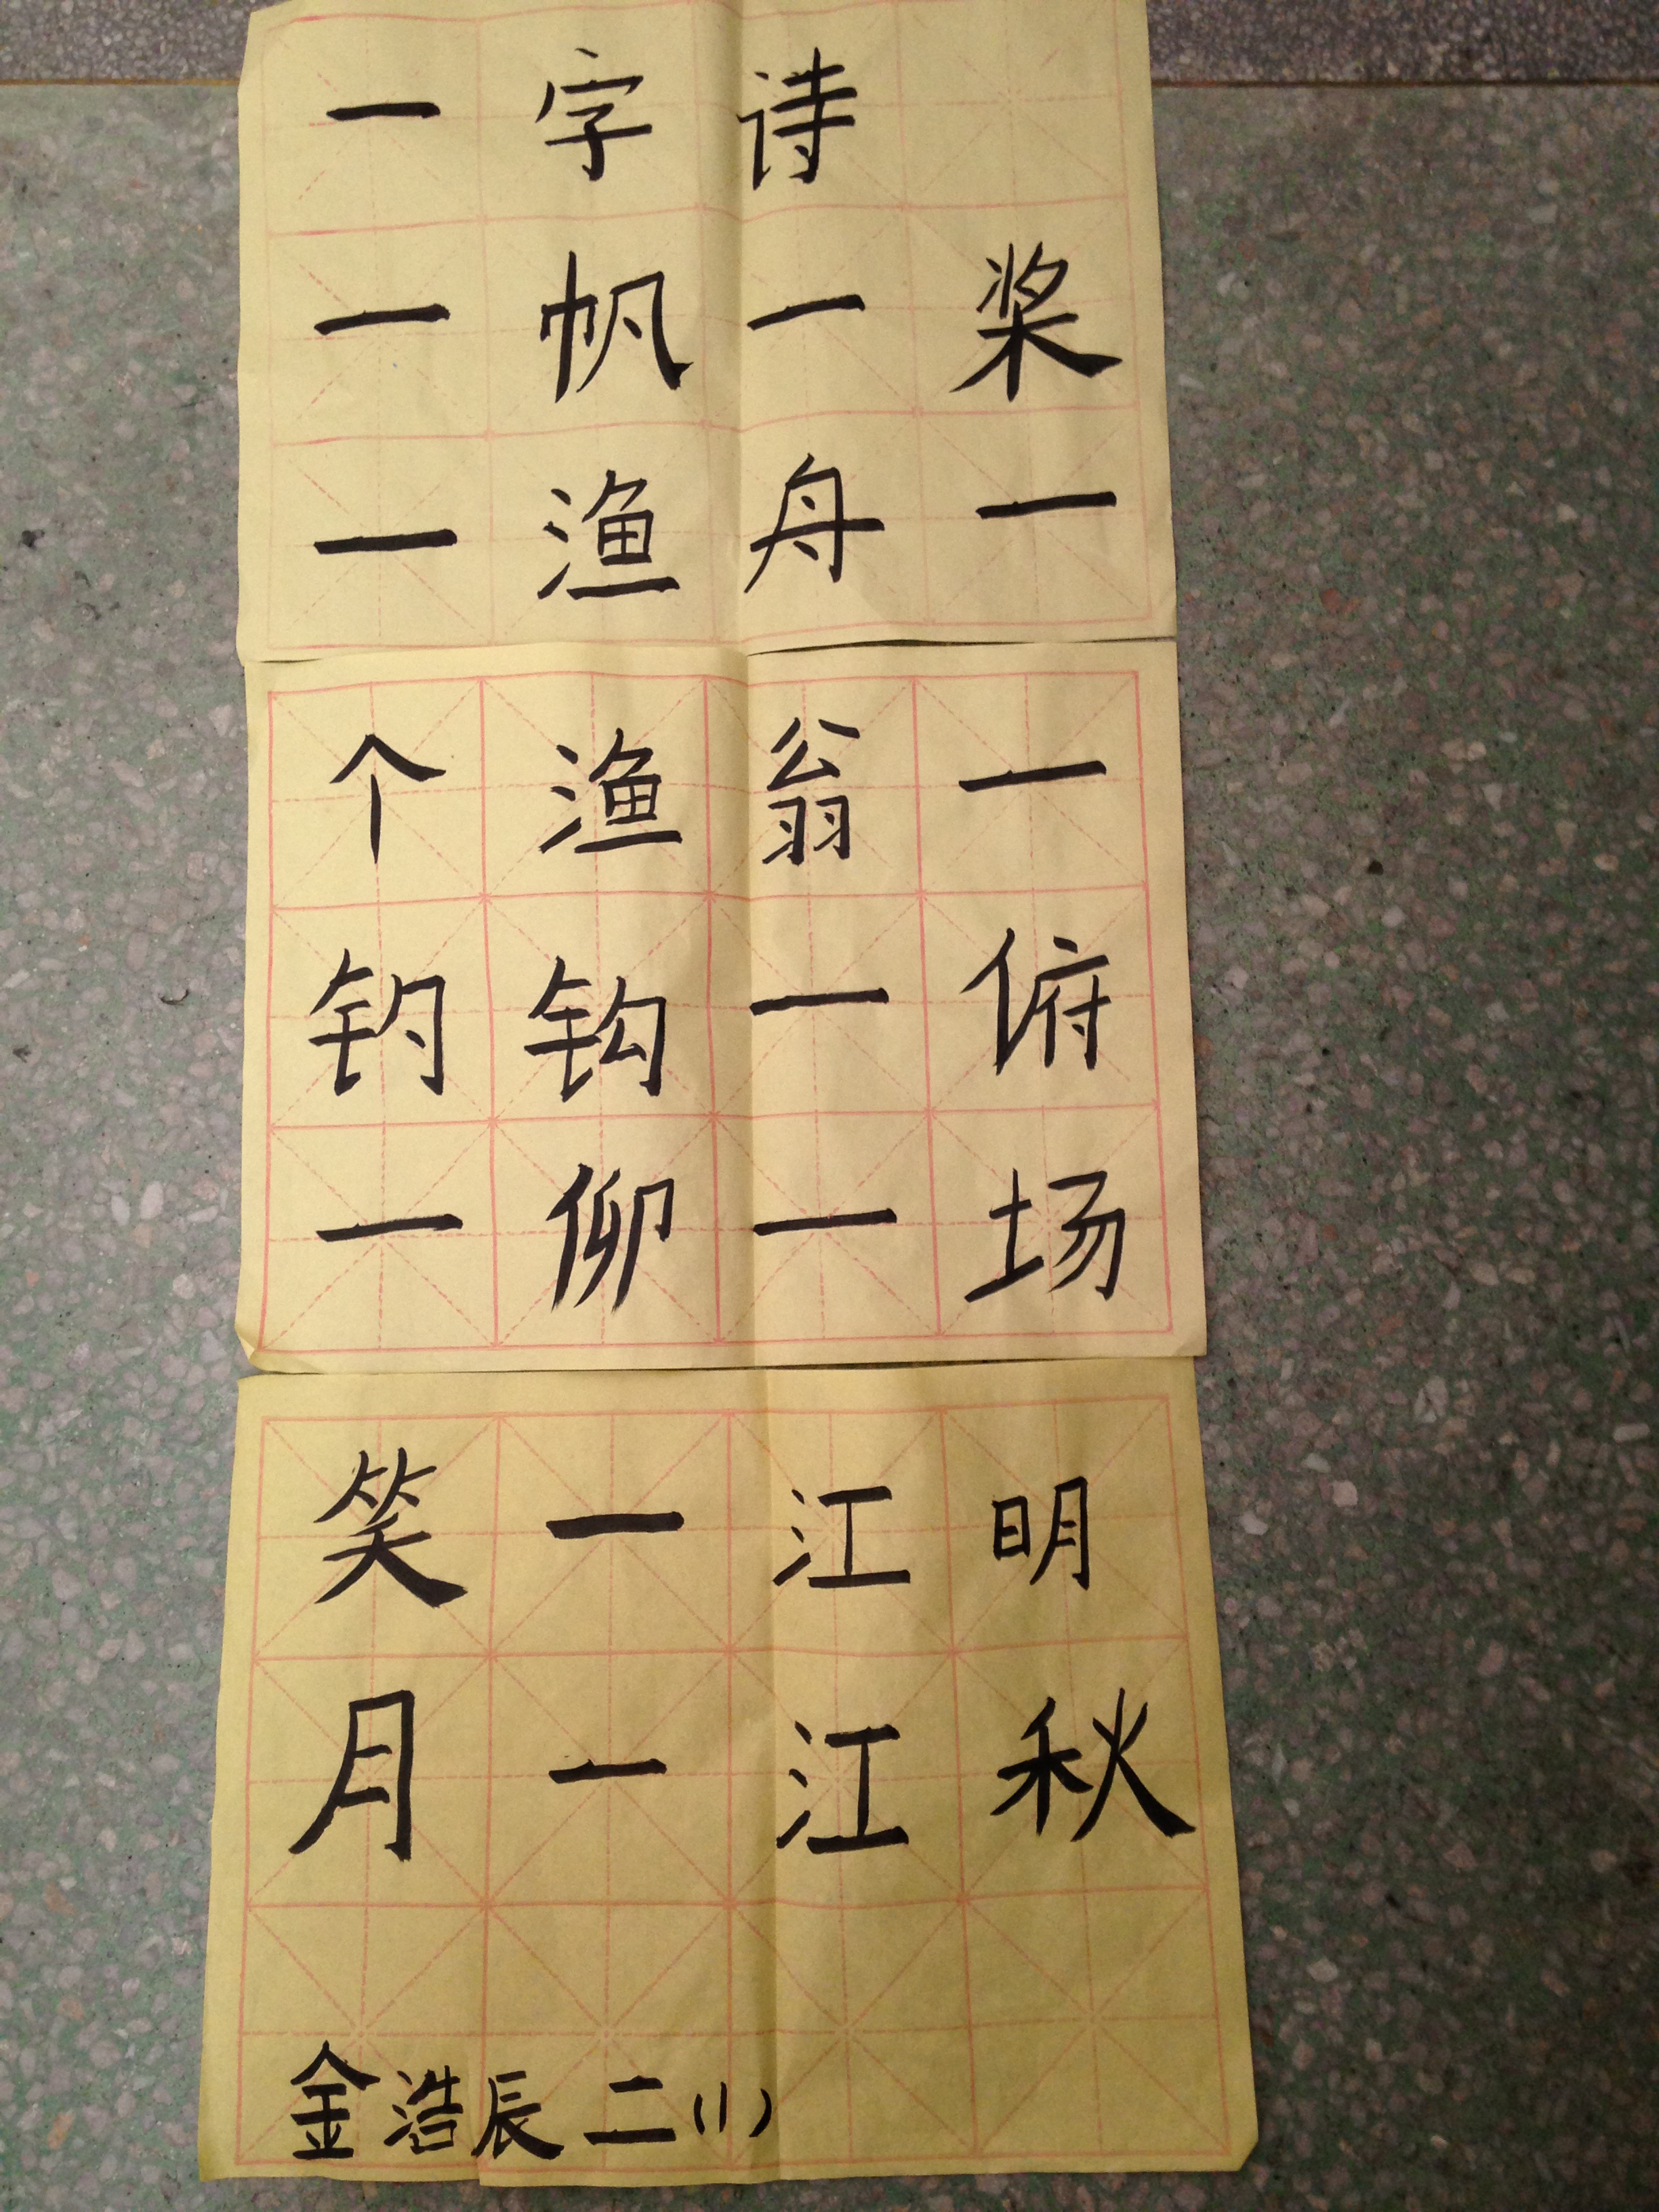 一字诗
一帆一桨
一渔舟一
个渔翁一
钓钩一俯
一仰一场
笑一江明
月一江秋
金浩辰二(1)